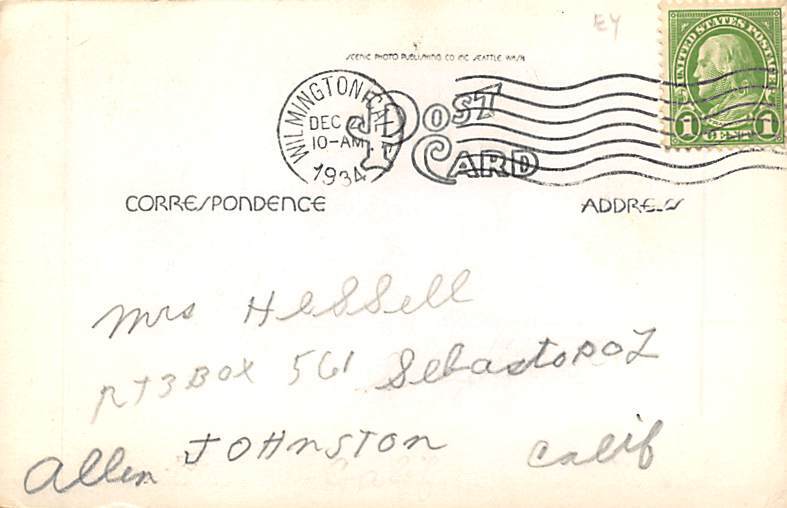 EY
UNITED STATES POSTAGE
1 CENT 1
SCENIC PHOTO PUBLISHING CO INC SEATTLE WASH
WILMINGTON
DEC
10-AM
1934
POST CARD
CORRESPONDENCE ADDRESS
Mrs Hessell
RT3 BOX 561 Sebastopol
Allen JOHNSTON Calif